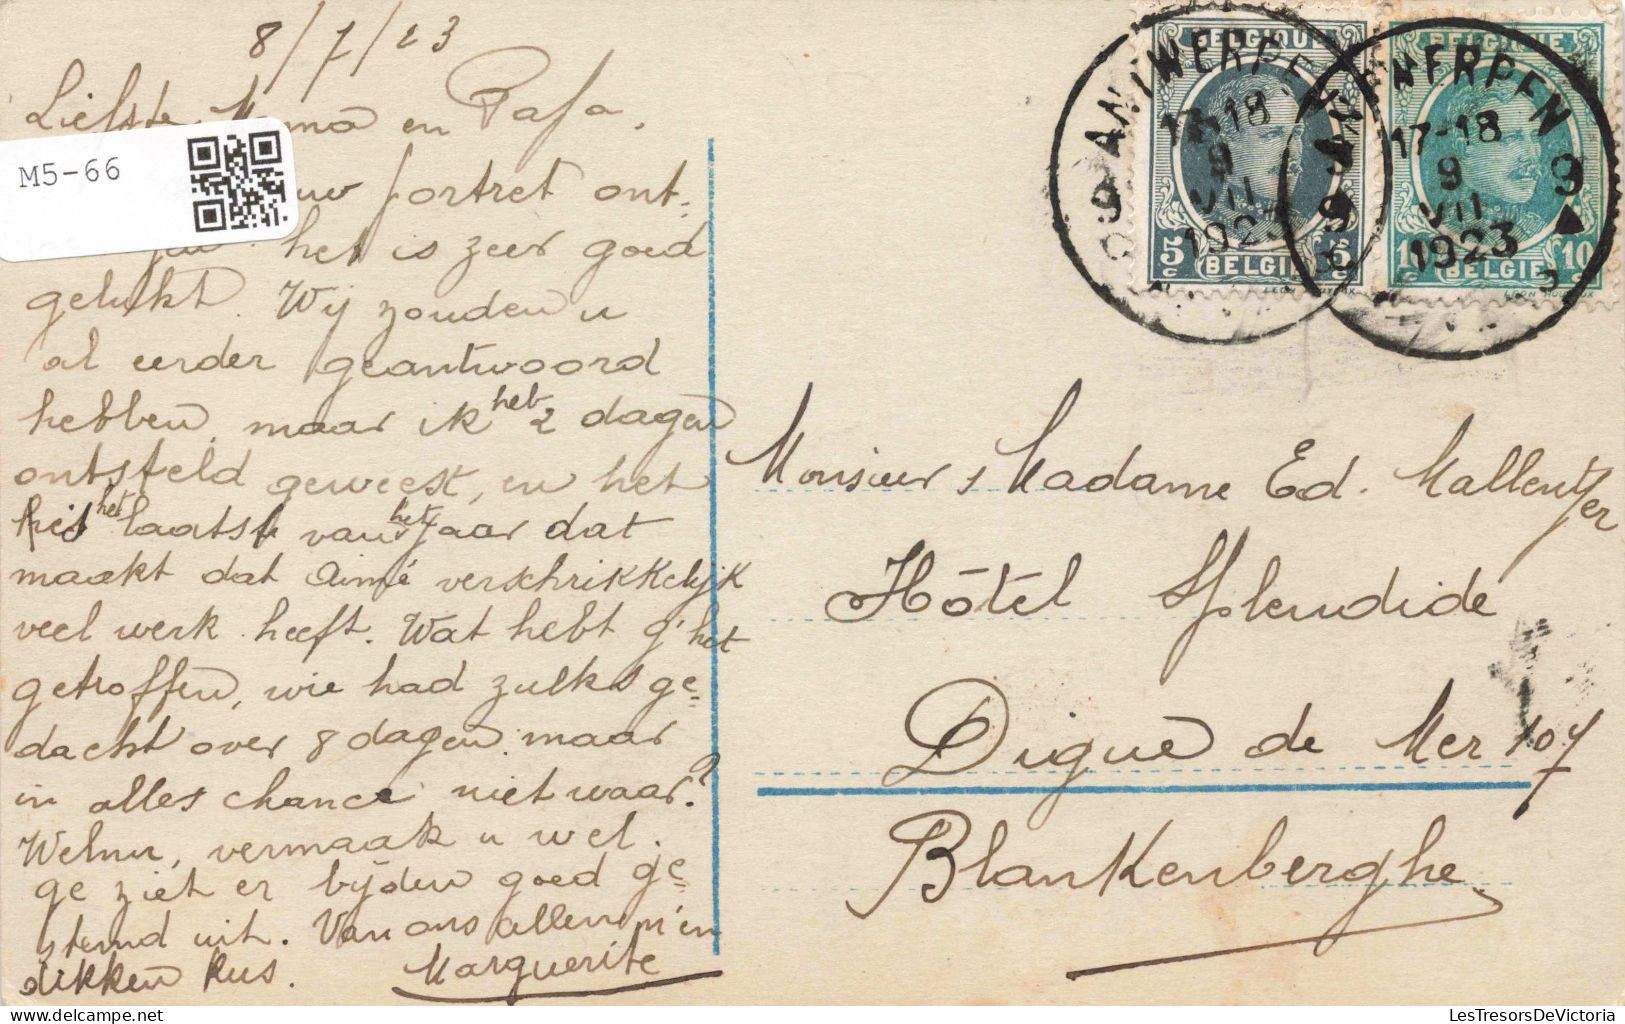 8/7/23
Liefste Mama en Papa.
M5-66
uw portret ont=
het is zeer goed
gelukt. Wij zouden u
al eerder geantwoord
hebben, maar ik heb 2 dagen
ontsteld geweest, en het
is het laatst van het jaar dat
maakt dat Aimé verschrikkelijk
veel werk heeft. Wat hebt g'het
getroffen, wie had zulks ge=
dacht over 8 dagen maar
in alles chance niet waar?
Welnu, vermaak u wel.
ge ziet er bijden goed ge=
stemd uit. Van ons allen m'en
dikken kus.
Marguerite
BELGIQUE
5c 5c
BELGIE
ANTWERPEN
17-18
9
VII
1923
BELGIQUE
10c 10c
BELGIE
ANTWERPEN 9
17-18
9
VII
1923
Monsieur & Madame Ed. Mallentjer
Hôtel Splendide
Digue de Mer 107
Blankenberghe.
LesTresorsDeVictoria.com